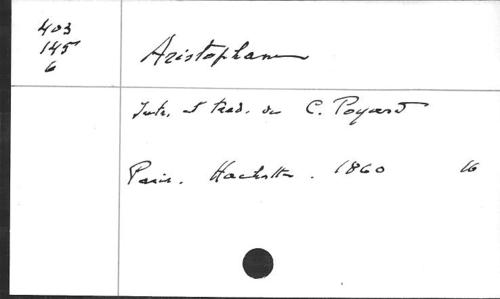 403
145
6
Aristophane
Intr. et trad. de C. Poyard
Paris. Hachette. 1860 16